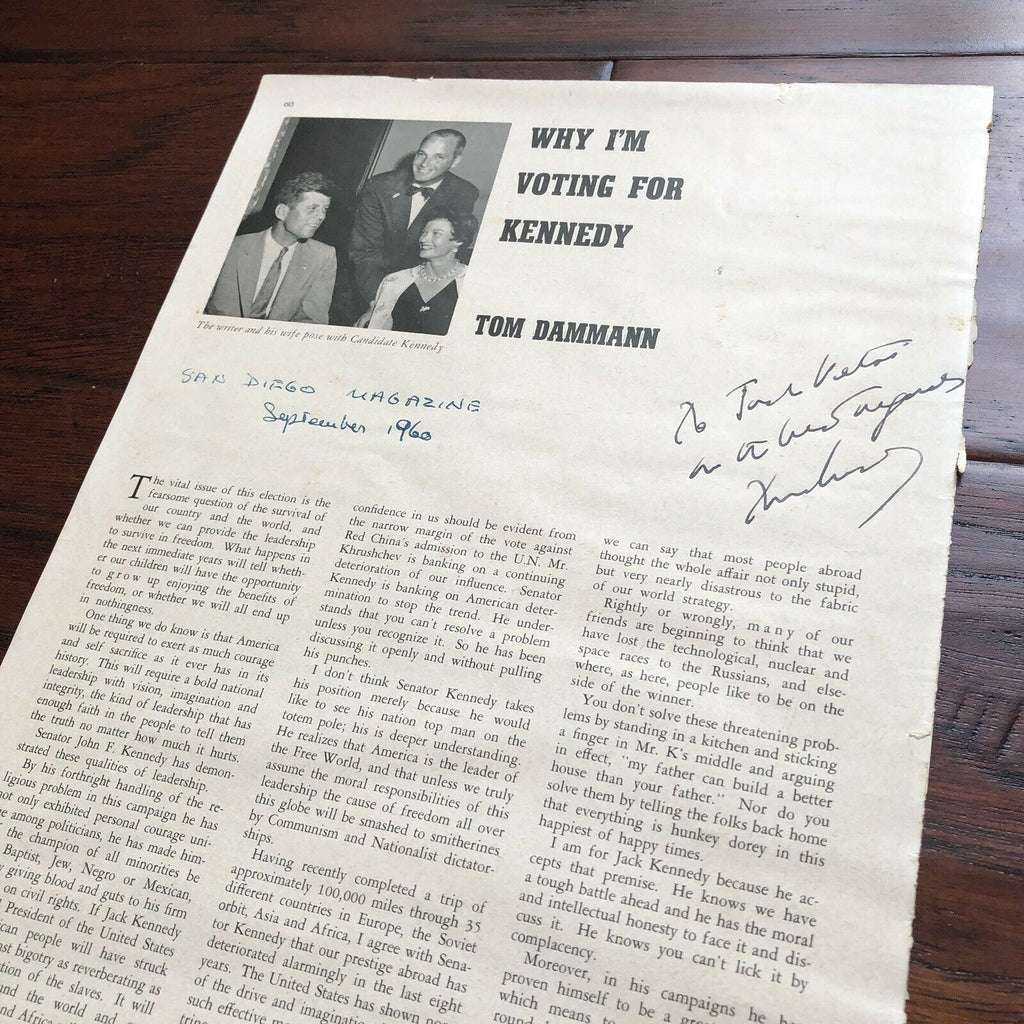 60
WHY I'M
VOTING FOR
KENNEDY
TOM DAMMANN
The writer and his wife pose with Candidate Kennedy
SAN DIEGO MAGAZINE
September 1960
To Jack
The vital issue of this election is the
fearsome question of the survival of
our country and the world, and
whether we can provide the leadership
to survive in freedom. What happens in
the next immediate years will tell wheth-
er our children will have the opportunity
to grow up enjoying the benefits of
freedom, or whether we will all end up
in nothingness.
One thing we do know is that America
will be required to exert as much courage
and self sacrifice as it ever has in its
history. This will require a bold national
leadership with vision, imagination and
integrity, the kind of leadership that has
enough faith in the people to tell them
the truth no matter how much it hurts.
Senator John F. Kennedy has demon-
strated these qualities of leadership.
By his forthright handling of the re-
ligious problem in this campaign he has
not only exhibited personal courage uni-
among politicians, he has made him-
the champion of all minorities be
Baptist, Jew, Negro or Mexican,
giving blood and guts to his firm
on civil rights. If Jack Kennedy
President of the United States
people will have struck
bigotry as reverberating as
of the slaves. It will
the world and
Africa
confidence in us should be evident from
the narrow margin of the vote against
Red China's admission to the U.N. Mr.
Khrushchev is banking on a continuing
deterioration of our influence. Senator
Kennedy is banking on American deter-
mination to stop the trend. He under-
stands that you can't resolve a problem
unless you recognize it. So he has been
discussing it openly and without pulling
his punches.
I don't think Senator Kennedy takes
his position merely because he would
like to see his nation top man on the
totem pole; his is deeper understanding.
He realizes that America is the leader of
the Free World, and that unless we truly
assume the moral responsibilities of this
leadership the cause of freedom all over
this globe will be smashed to smitherines
by Communism and Nationalist dictator-
ships.
Having recently completed a trip of
approximately 100,000 miles through 35
different countries in Europe, the Soviet
orbit, Asia and Africa, I agree with Sena-
tor Kennedy that our prestige abroad has
deteriorated alarmingly in the last eight
years. The United States has shown
of the drive and
such effective
we can say that most people abroad
thought the whole affair not only stupid,
but very nearly disastrous to the fabric
of our world strategy.
Rightly or wrongly, many of our
friends are beginning to think that we
have lost the technological, nuclear and
space races to the Russians, and else-
where, as here, people like to be on the
side of the winner.
You don't solve these threatening prob-
lems by standing in a kitchen and sticking
a finger in Mr. K's middle and arguing
in effect, "my father can build a better
house than your father." Nor do you
solve them by telling the folks back home
that everything is hunkey dorey in this
happiest of happy times.
I am for Jack Kennedy because he ac-
cepts that premise. He knows we have
a tough battle ahead and he has the moral
and intellectual honesty to face it and dis-
cuss it. He knows you can't lick it by
complacency.
Moreover, in his campaigns he
proven himself to be a
which means to
round